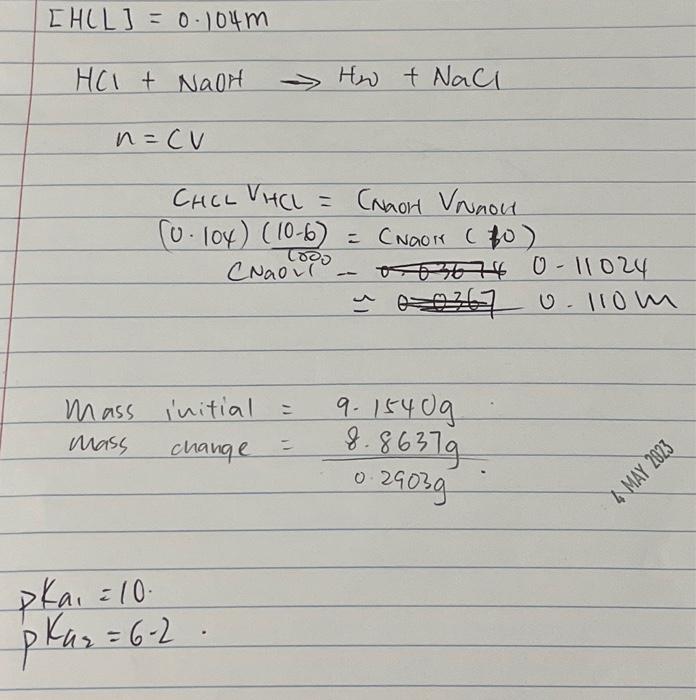 [HCL] = 0.104m
HCl + NaOH → H₂O + NaCl
n = CV
CHCL VHCL = CNaOH VNaOH
(0.104) (10.6)/1000 = CNaOH (10)
CNaOH = 0.03674 0.11024
≈ 0.0367 0.110m
Mass initial = 9.1540g
Mass change = 8.8637g
0.2903g
4 MAY 2023
pKa₁ = 10.
pKa₂ = 6.2.